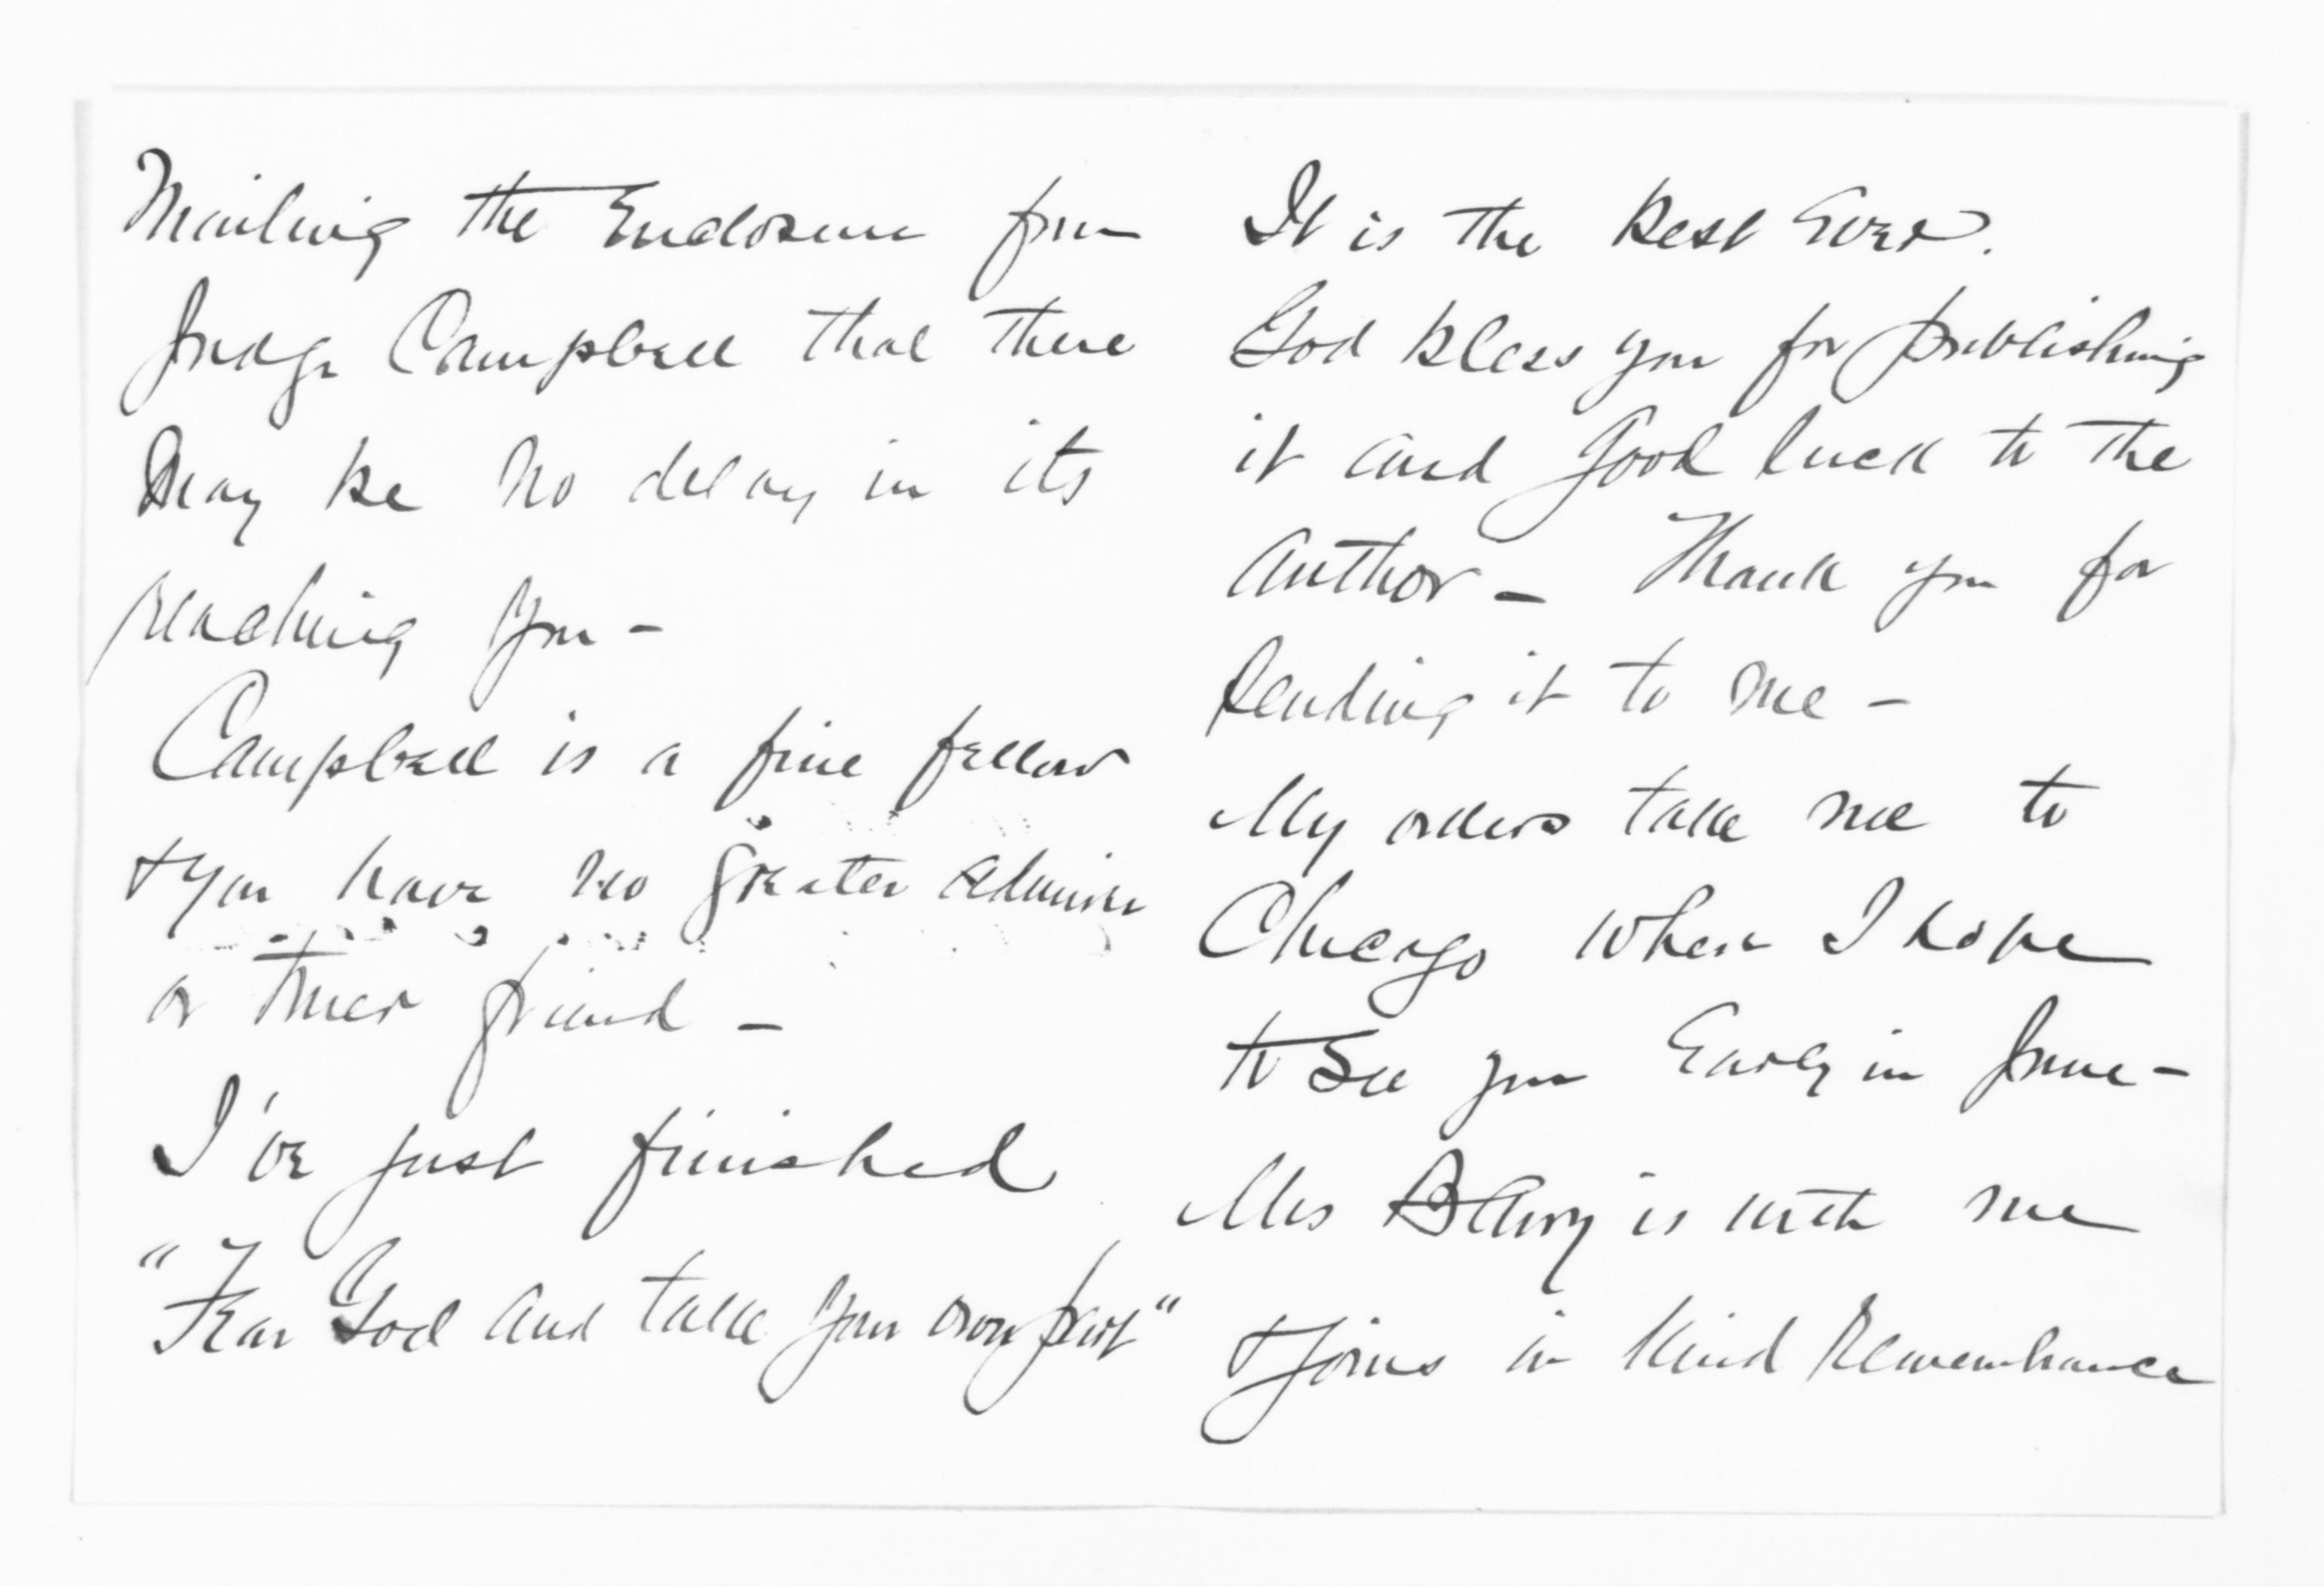 Mailing the Enclosure from
Judge Campbell that there
may be no delay in its
reaching you –
Campbell is a fine fellow
& you have no greater admirer
or truer friend –
I've just finished
"Fear God and take your own part"
It is the best ever.
God bless you for publishing
it and good luck to the
author – Thank you for
sending it to me –
My orders take me to
Chicago where I hope
to see you Early in June –
Mrs is with me
& joins in kind remembrance